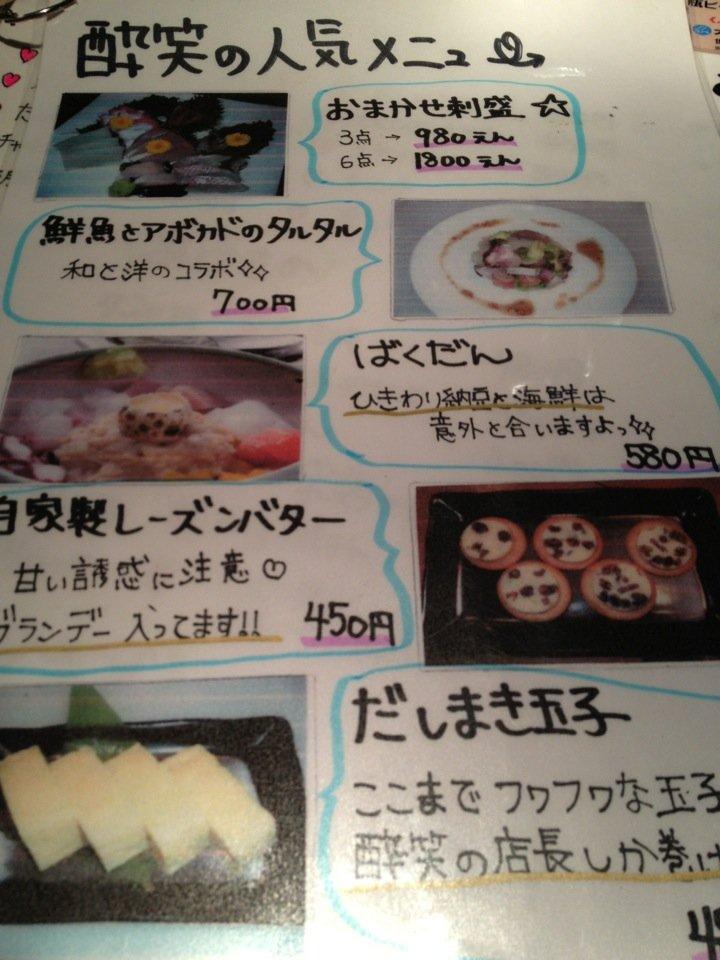 酔笑の人気メニュー
おまかせ刺盛☆
3点→980えん
6点→1800えん
鮮魚とアボカドのタルタル
和と洋のコラボ✧✧
700円
ばくだん
ひきわり納豆と海鮮は
意外と合いますよっ✧✧
580円
自家製レーズンバター
甘い誘惑に注意♡
ブランデー入ってます!!
450円
だしまき玉子
ここまでフワフワな玉子
酔笑の店長しか巻け